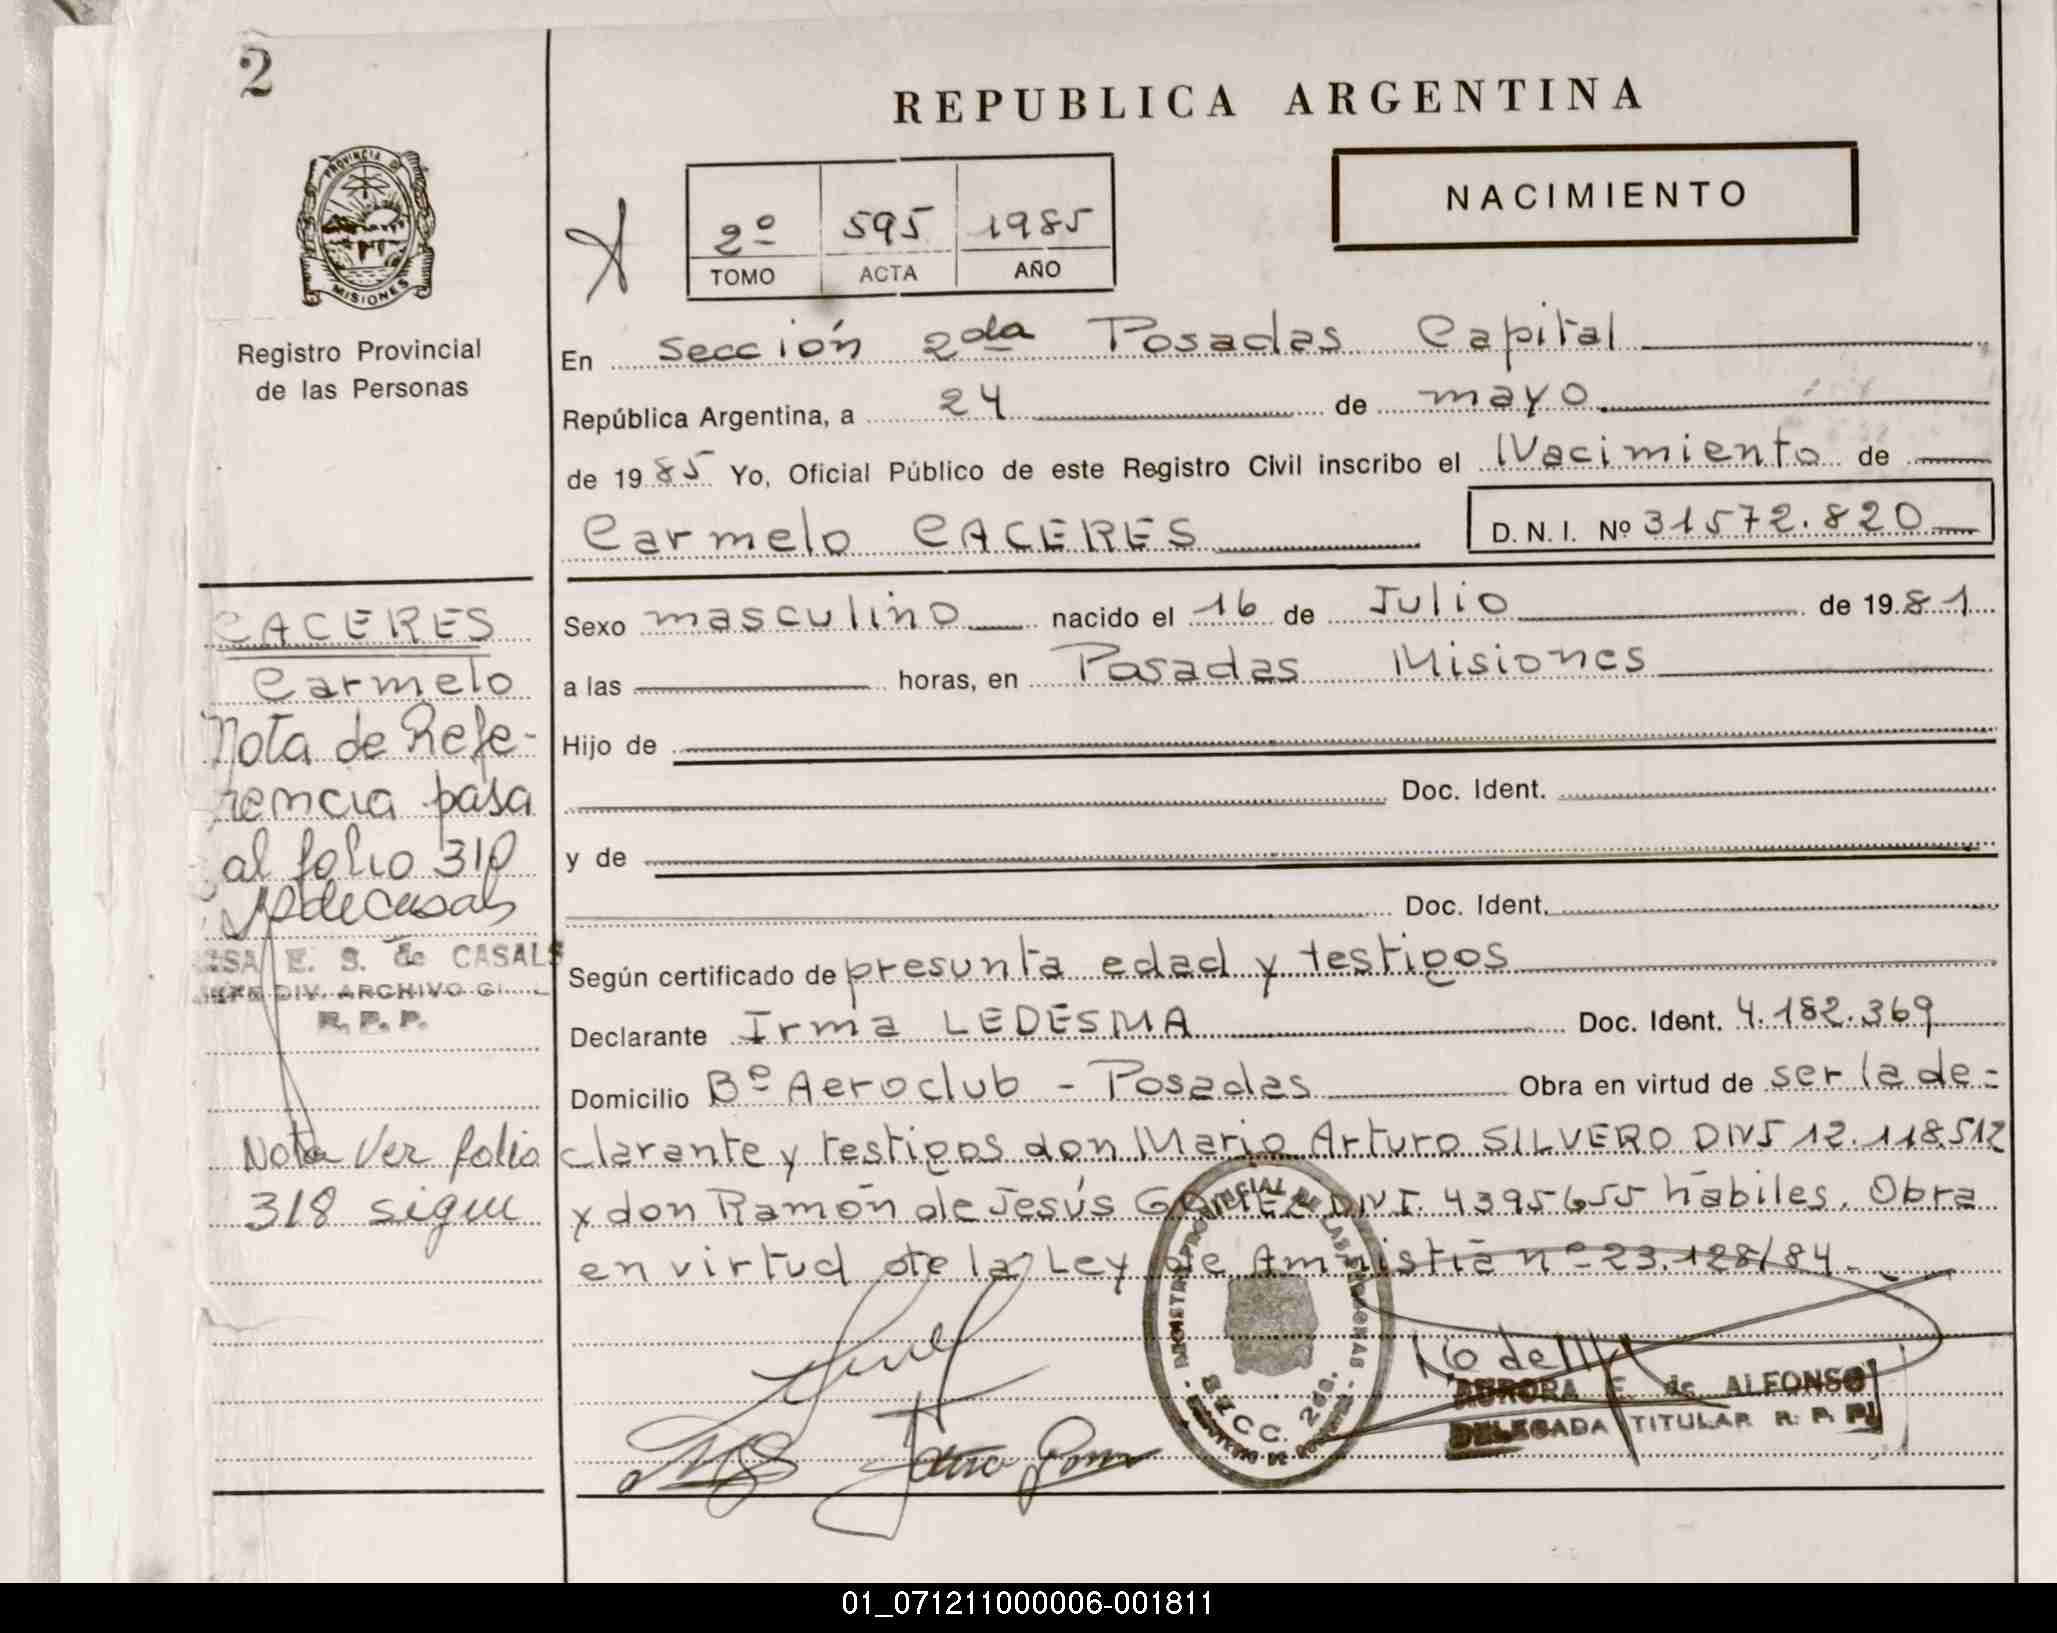 2
REPUBLICA ARGENTINA
PROVINCIA DE
MISIONES
Registro Provincial
de las Personas
2º 595 1985
TOMO ACTA AÑO
NACIMIENTO
En sección 2da Posadas Capital
República Argentina, a 24 de mayo
de 1985 Yo, Oficial Público de este Registro Civil inscribo el Nacimiento de
Carmelo CACERES D. N. I. Nº 31572.820
Sexo masculino nacido el 16 de Julio de 1981
a las horas, en Posadas Misiones
Hijo de
Doc. Ident.
y de
Doc. Ident.
Según certificado de presunta edad y testigos
Declarante Irma LEDESMA Doc. Ident. 4.182.369
Domicilio Bº Aeroclub - Posadas Obra en virtud de ser la de=
clarante y testigos don Mario Arturo SILVERO DNI 12.118.512
y don Ramón de Jesús GOMEZ DNI. 4395655 hábiles. Obra
en virtud de la Ley de Amnistia nº 23.128/84.
CACERES
Carmelo
Nota de Refe-
rencia pasa
al folio 310
E. S. de CASALS
JEFE DIV. ARCHIVO
R. P. P.
Nota Ver folio
318 sigue
SECC. 2da.
AURORA E. de ALFONSO
DELEGADA TITULAR R. P. P.
01_071211000006-001811